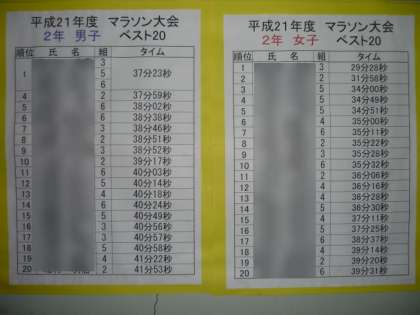 平成21年度 マラソン大会
2年 男子 ベスト20
順位 氏 名 組 タイム
3
1 5 37分23秒
6
4 2 37分59秒
5 6 38分02秒
6 6 38分38秒
7 3 38分46秒
8 2 38分51秒
9 3 38分52秒
10 2 39分17秒
11 6 40分03秒
12 5 40分14秒
13 4 40分18秒
14 6 40分24秒
15 5 40分49秒
16 6 40分56秒
17 3 40分57秒
18 5 40分58秒
19 4 41分22秒
20 2 41分53秒
平成21年度 マラソン大会
2年 女子 ベスト20
順位 氏 名 組 タイム
1 3 29分28秒
2 2 31分58秒
3 5 34分00秒
4 5 34分49秒
5 5 34分51秒
6 6 35分00秒
7 6 35分11秒
8 2 35分22秒
9 3 35分28秒
10 6 35分32秒
11 2 36分06秒
12 4 36分16秒
13 4 36分28秒
14 5 36分30秒
15 4 37分11秒
16 5 37分25秒
17 6 38分37秒
18 4 39分14秒
19 2 39分20秒
20 6 39分31秒